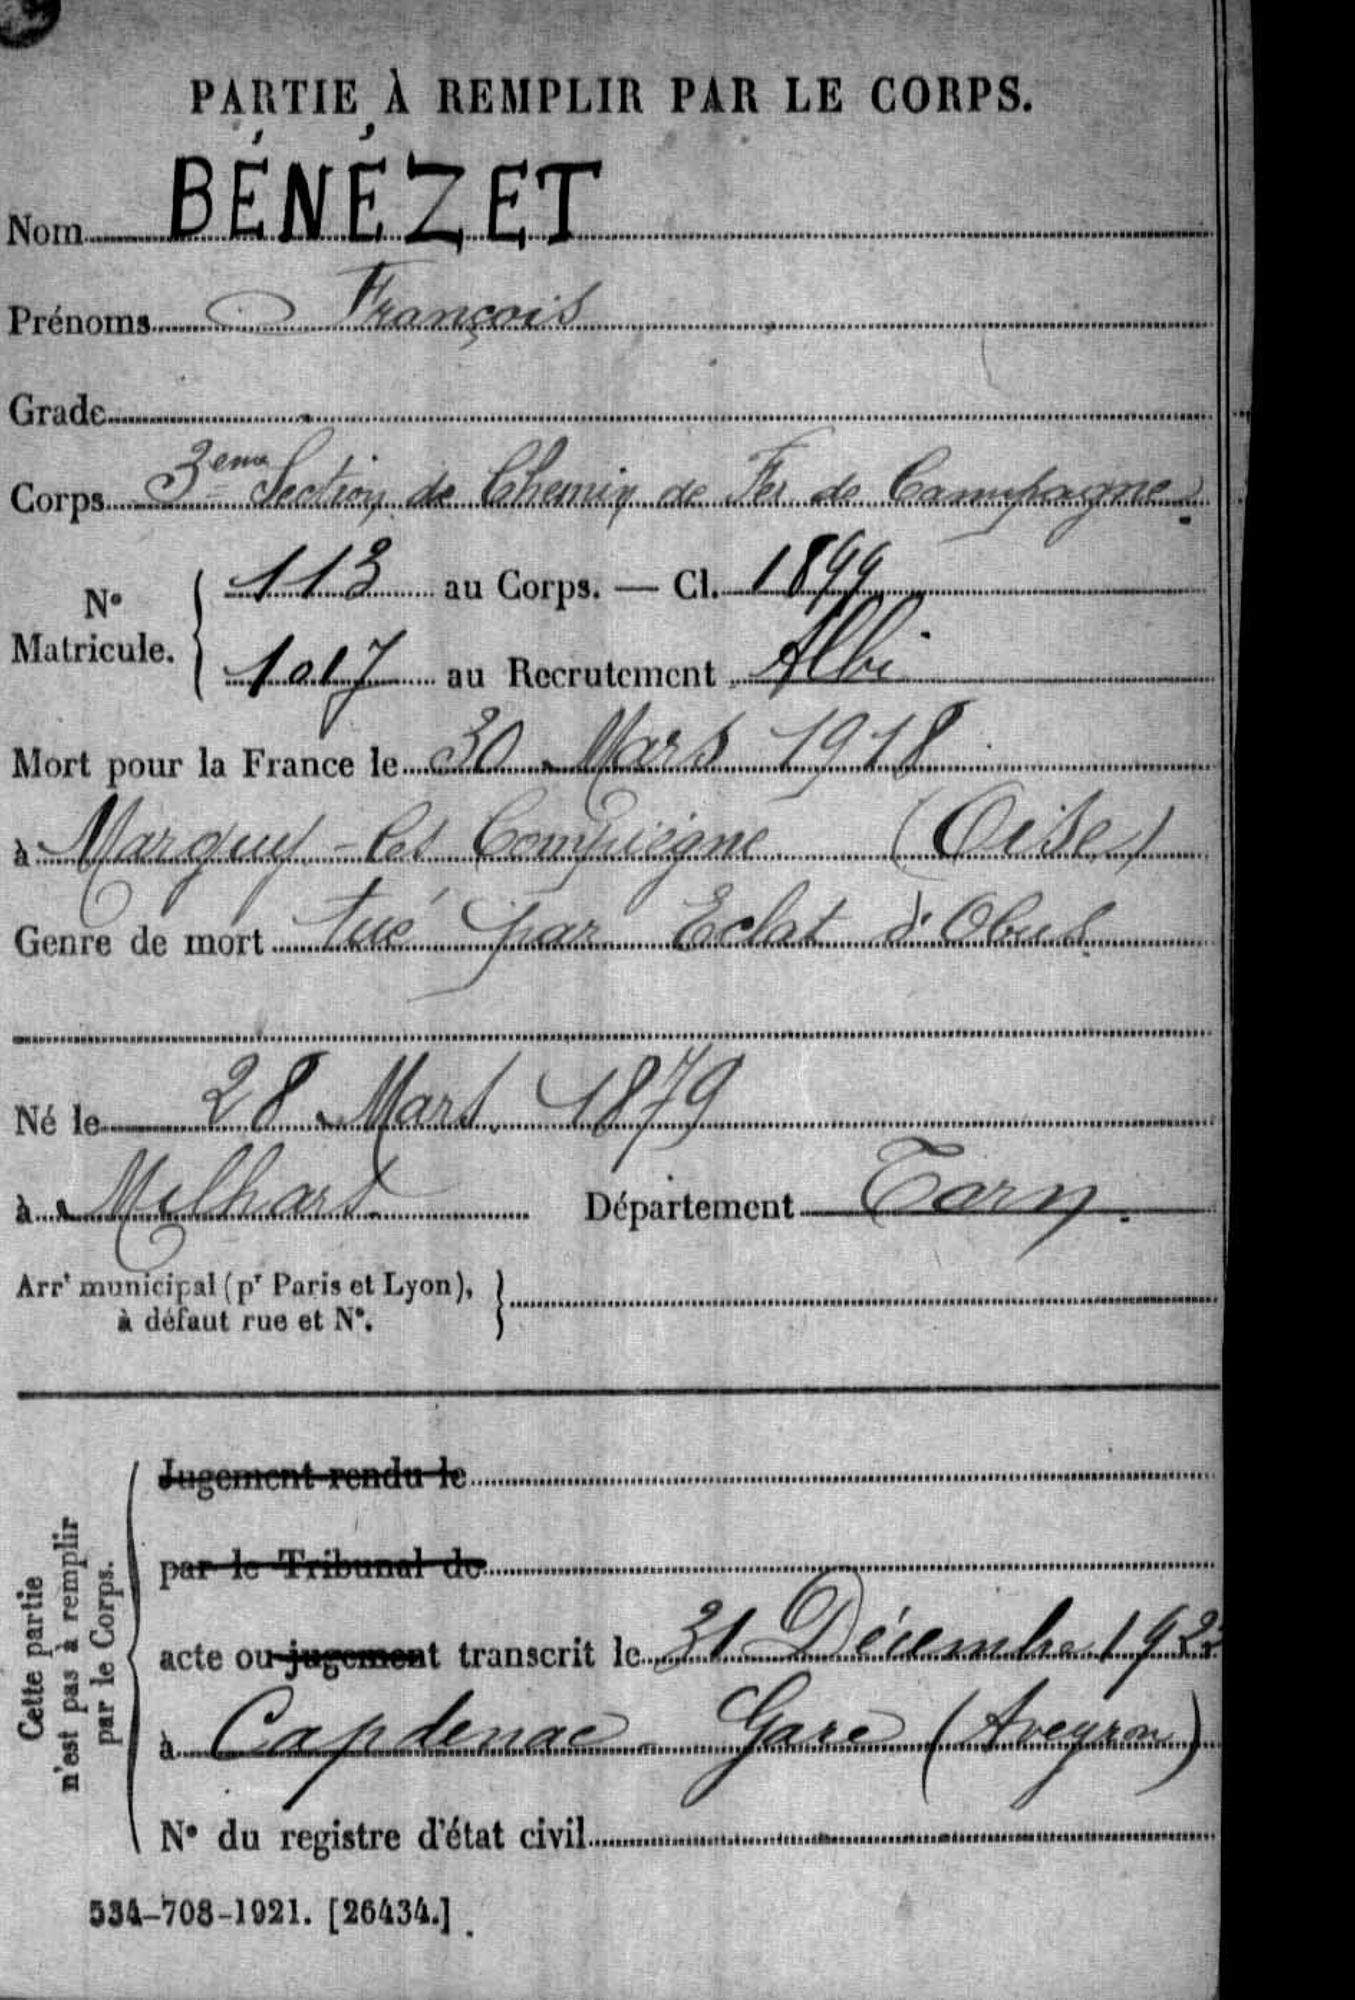 PARTIE À REMPLIR PAR LE CORPS.
Nom BÉNÉZET
Prénoms François
Grade
Corps 3eme Section de Chemin de Fer de Campagne
N° Matricule. 113 au Corps. — Cl. 1899
1017 au Recrutement Albi
Mort pour la France le 30 Mars 1918
à Marguy-les Compiègne (Oise)
Genre de mort tué par Eclat d'Obus
Né le 28 Mars 1879
à Milhars Département Tarn.
Arrt municipal (pr Paris et Lyon),
à défaut rue et N°.
Cette partie
n'est pas à remplir
par le Corps.
Jugement rendu le
par le Tribunal de
acte ou jugement transcrit le 31 Décembre 1922
à Capdenac-Gare (Aveyron)
N° du registre d'état civil
534-708-1921. [26434.]